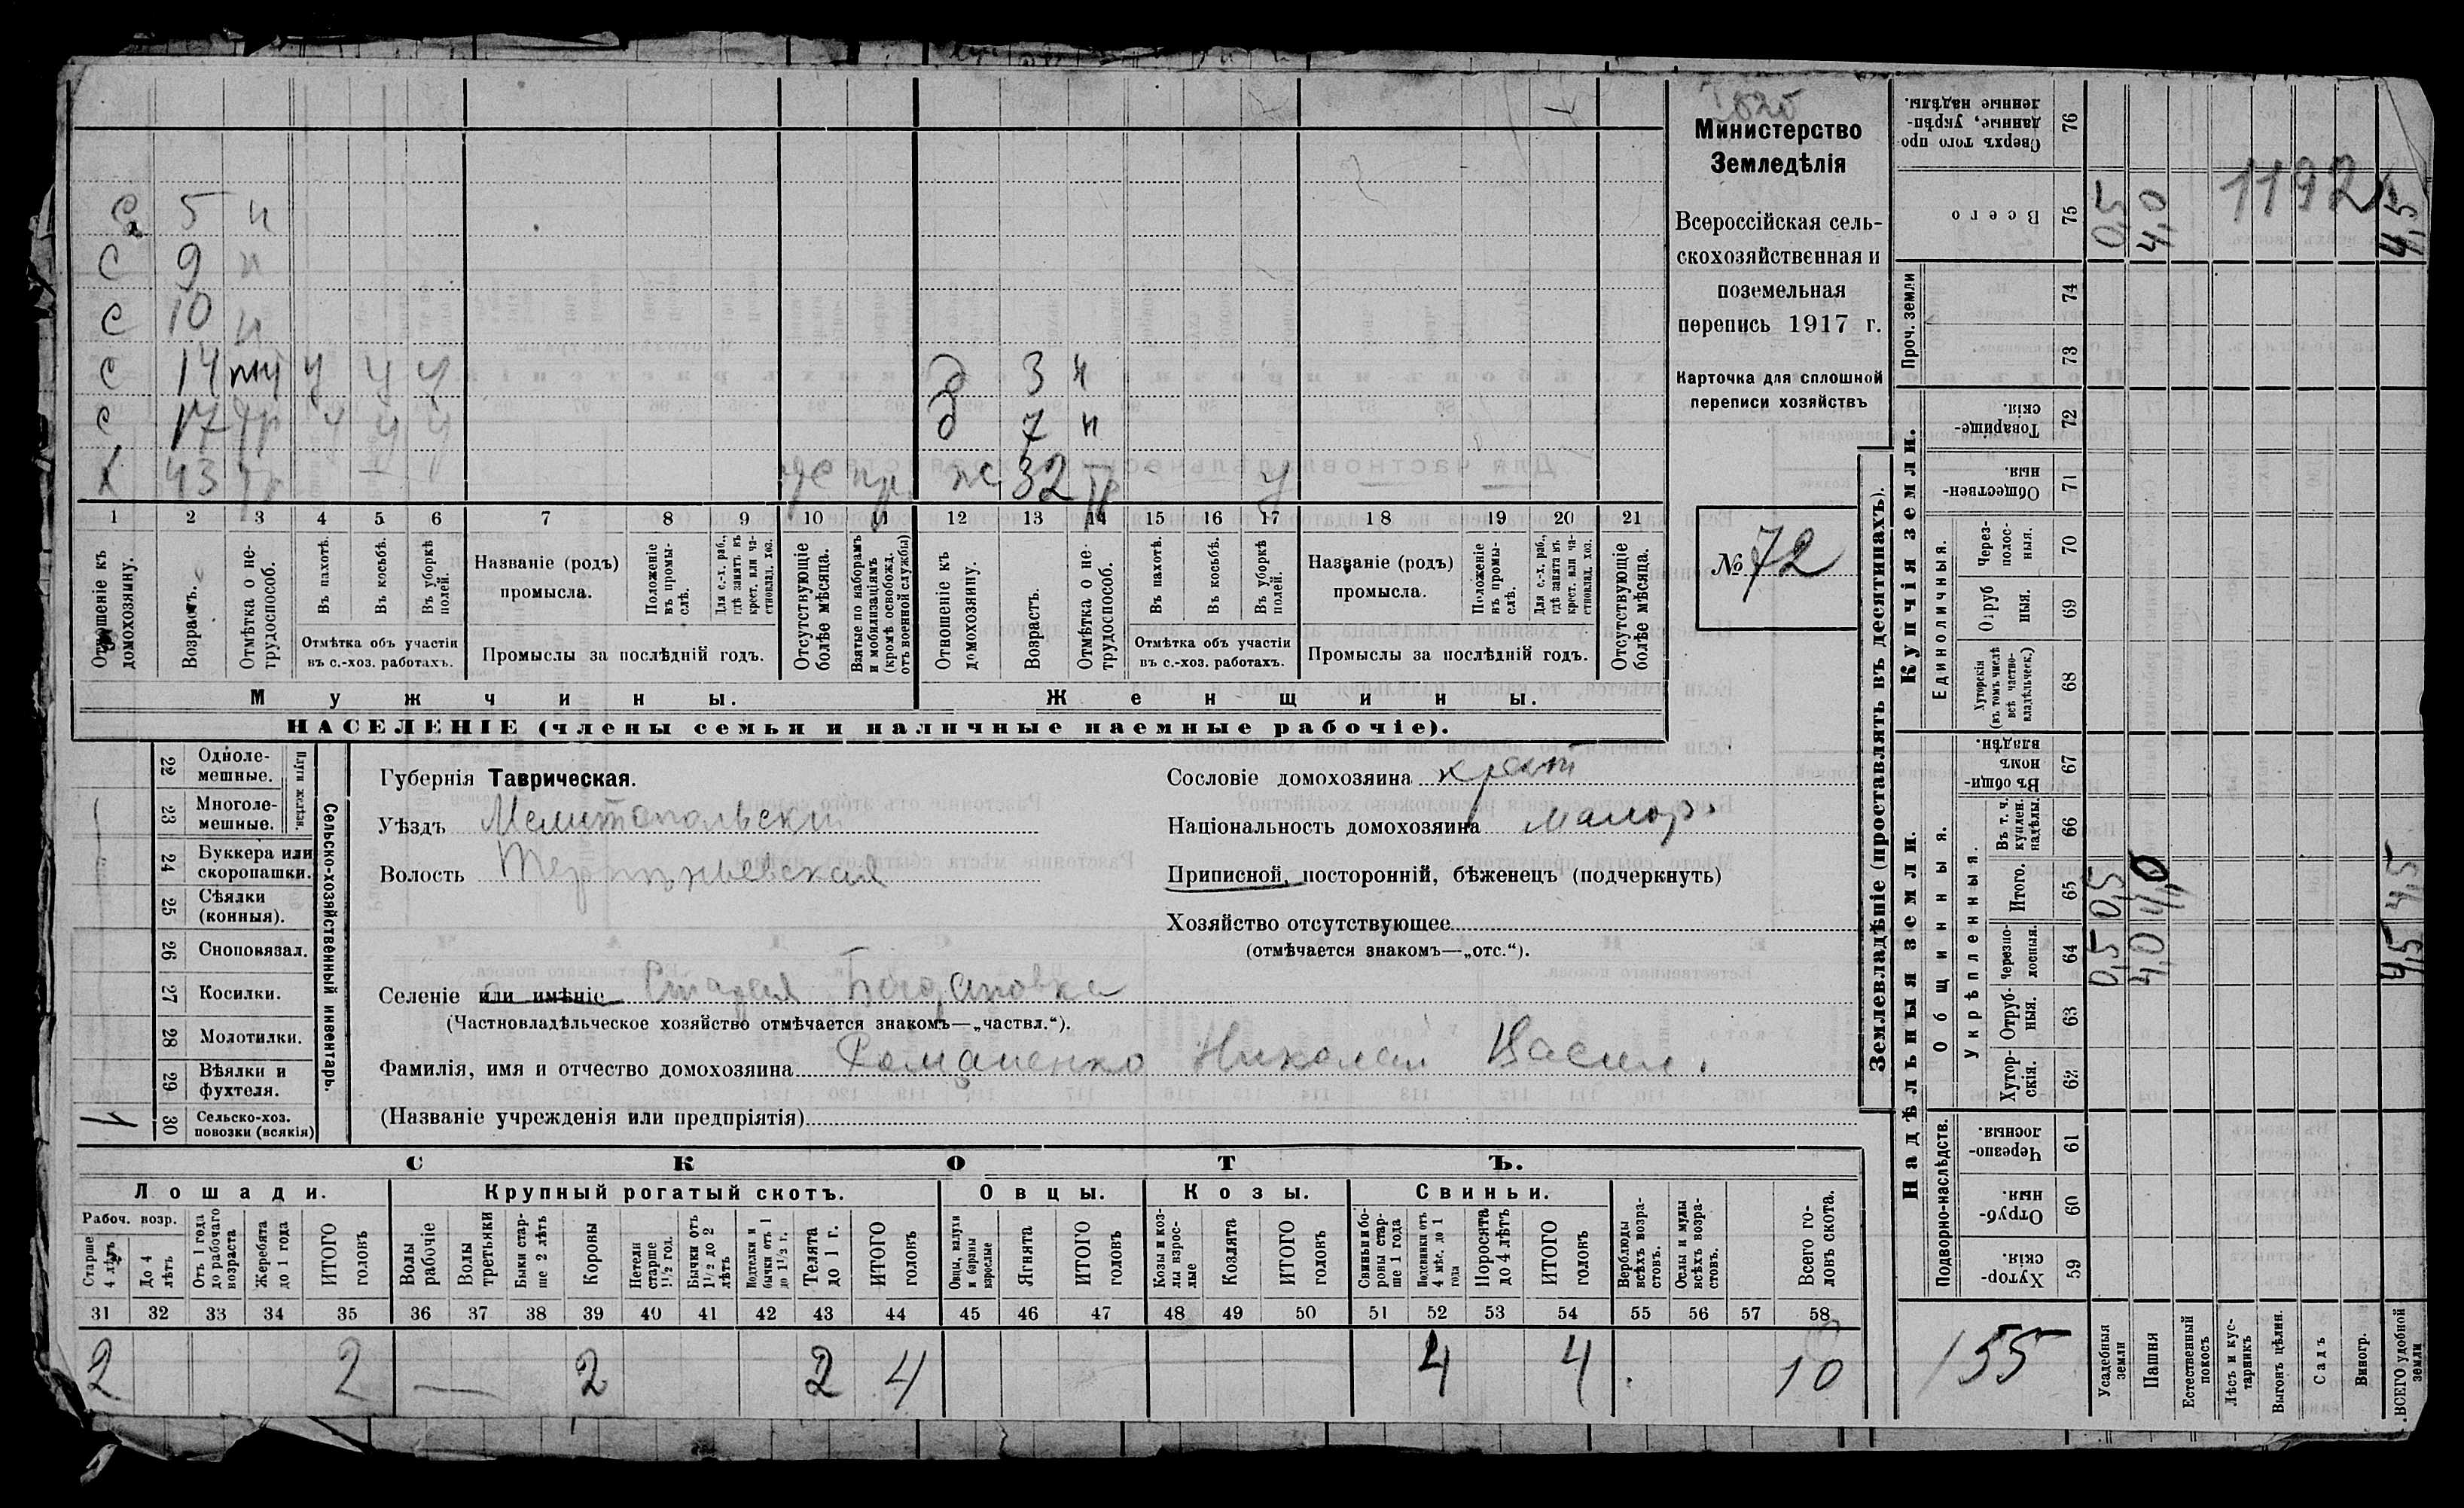 с 5 н
с 9 н
с 10 н
с 14 у у у д 3 н
с 17 у у д 7 н
х 43 ж 32 у
1 2 3 4 5 6 7 8 9 10 11 12 13 14 15 16 17 18 19 20 21
Отношеніе къ домохозяину.
Возрастъ.
Отмѣтка о не-трудоспособ.
Въ пахотѣ.
Въ косьбѣ.
Въ уборкѣ полей.
Отмѣтка объ участіи
въ с.-хоз. работахъ.
Названіе (родъ)
промысла.
Положеніе въ промы-слѣ.
Для с.-х. раб., гдѣ занятъ къ крест. или ча-стновлад. хоз.
Промыслы за послѣдній годъ.
Отсутствующіе болѣе мѣсяца.
Взятые по наборамъ и мобилизаціямъ (кромѣ освобожд. отъ военной службы)
Отношеніе къ домохозяину.
Возрастъ.
Отмѣтка о не-трудоспособ.
Въ пахотѣ.
Въ косьбѣ.
Въ уборкѣ полей.
Отмѣтка объ участіи
въ с.-хоз. работахъ.
Названіе (родъ)
промысла.
Положеніе въ промы-слѣ.
Для с.-х. раб., гдѣ занята въ крест. или ча-стновлад. хоз.
Промыслы за послѣдній годъ.
Отсутствующіе болѣе мѣсяца.
Мужчины.
Женщины.
НАСЕЛЕНІЕ (члены семьи и наличные наемные рабочіе).
Министерство
Земледѣлія
Всероссійская сель-
скохозяйственная и
поземельная
перепись 1917 г.
Карточка для сплошной
переписи хозяйствъ
№ 72
22 Одноле-мешные.
23 Многоле-мешные.
Плуги желѣзн.
24 Буккера или скоропашки.
25 Сѣялки (конныя).
26 Сноповязал.
27 Косилки.
28 Молотилки.
29 Вѣялки и фухтеля.
1 30 Сельско-хоз. повозки (всякія)
Сельско-хозяйственный инвентарь.
Губернія Таврическая.
Уѣздъ Мелитопольский
Волость
Сословіе домохозяина крест
Національность домохозяина малор.
Приписной, посторонній, бѣженецъ (подчеркнуть)
Хозяйство отсутствующее
(отмѣчается знакомъ—„отс.“).
Селеніе или имѣніе Старая Богдановка
(Частновладѣльческое хозяйство отмѣчается знакомъ—„частвл.“).
Фамилія, имя и отчество домохозяина Романенко Николай Васил.
(Названіе учрежденія или предпріятія)
СКОТЪ.
Лошади. Крупный рогатый скотъ. Овцы. Козы. Свиньи.
Рабоч. возр.
Старше 4 лѣтъ
До 4 лѣтъ
Отъ 1 года до рабочаго возраста
Жеребята до 1 года
ИТОГО головъ
Волы рабочіе
Волы третьяки
Быки стар-ше 2 лѣтъ
Коровы
Нетели старше 1½ год.
Бычки отъ 1½ до 2 лѣтъ
Подтелки и бычки отъ 1 до 1½ г.
Телята до 1 г.
ИТОГО головъ
Овцы, валухи и бараны взрослые
Ягнята
ИТОГО головъ
Козы и коз-лы взрос-лые
Козлята
ИТОГО головъ
Свиньи бо-ровы стар-ше 1 года
Подсвинки отъ 4 мѣс. до 1 года
Поросята до 4 лѣтъ
ИТОГО головъ
Верблюды всѣхъ возра-стовъ.
Ослы и мулы всѣхъ возра-стовъ.
Всего го-ловъ скота.
31 32 33 34 35 36 37 38 39 40 41 42 43 44 45 46 47 48 49 50 51 52 53 54 55 56 57 58
2 2 — 2 2 4 4 4 10
Землевладѣніе (проставлять въ десятинахъ).
Купчія земли.
Надѣльныя земли.
Сверхъ того про-данные, укрѣп-ленные надѣлы. 76
Всего 75 0,5 4,0 4,5
1192
Проч. земли
74
73
Товарище-скія. 72
Обществен-ныя. 71
Единоличныя.
Через-полос-ныя. 70
Отруб-ныя. 69
Хуторскія (въ томъ числѣ всѣ частно-владѣльческ.) 68
Въ общин-номъ владѣн. 67
Общинныя.
Укрѣпленныя.
Въ т. ч. куплен. надѣлы. 66
Итого. 65 0,5 4,0 4,5
Черезпо-лосныя. 64 0,5 4,0 4,5
Отруб-ныя. 63
Хутор-скія. 62
Подворно-наслѣдств.
Черезпо-лосныя. 61
Отруб-ныя. 60
Хутор-скія. 59
155
Усадебныя земли
Пашня
Естественный покосъ
Лѣсъ и кус-тарникъ
Выгонъ цѣлин.
Садъ
Виногр.
ВСЕГО удобной земли